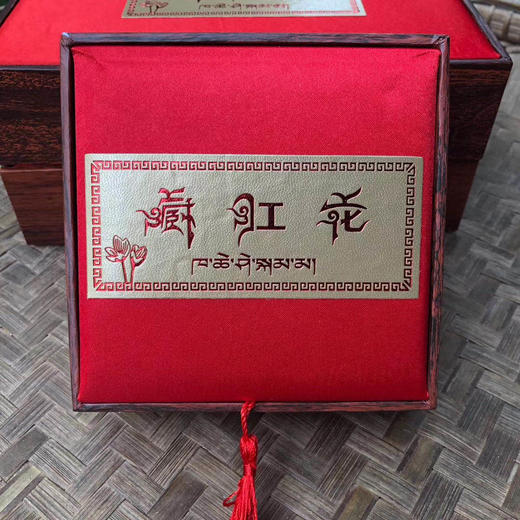 藏红花
ཁ་ཆེ་ཤེ་སྐམ་མ།
ཁ་ཆེ་ཤེ་སྐམ་མ།